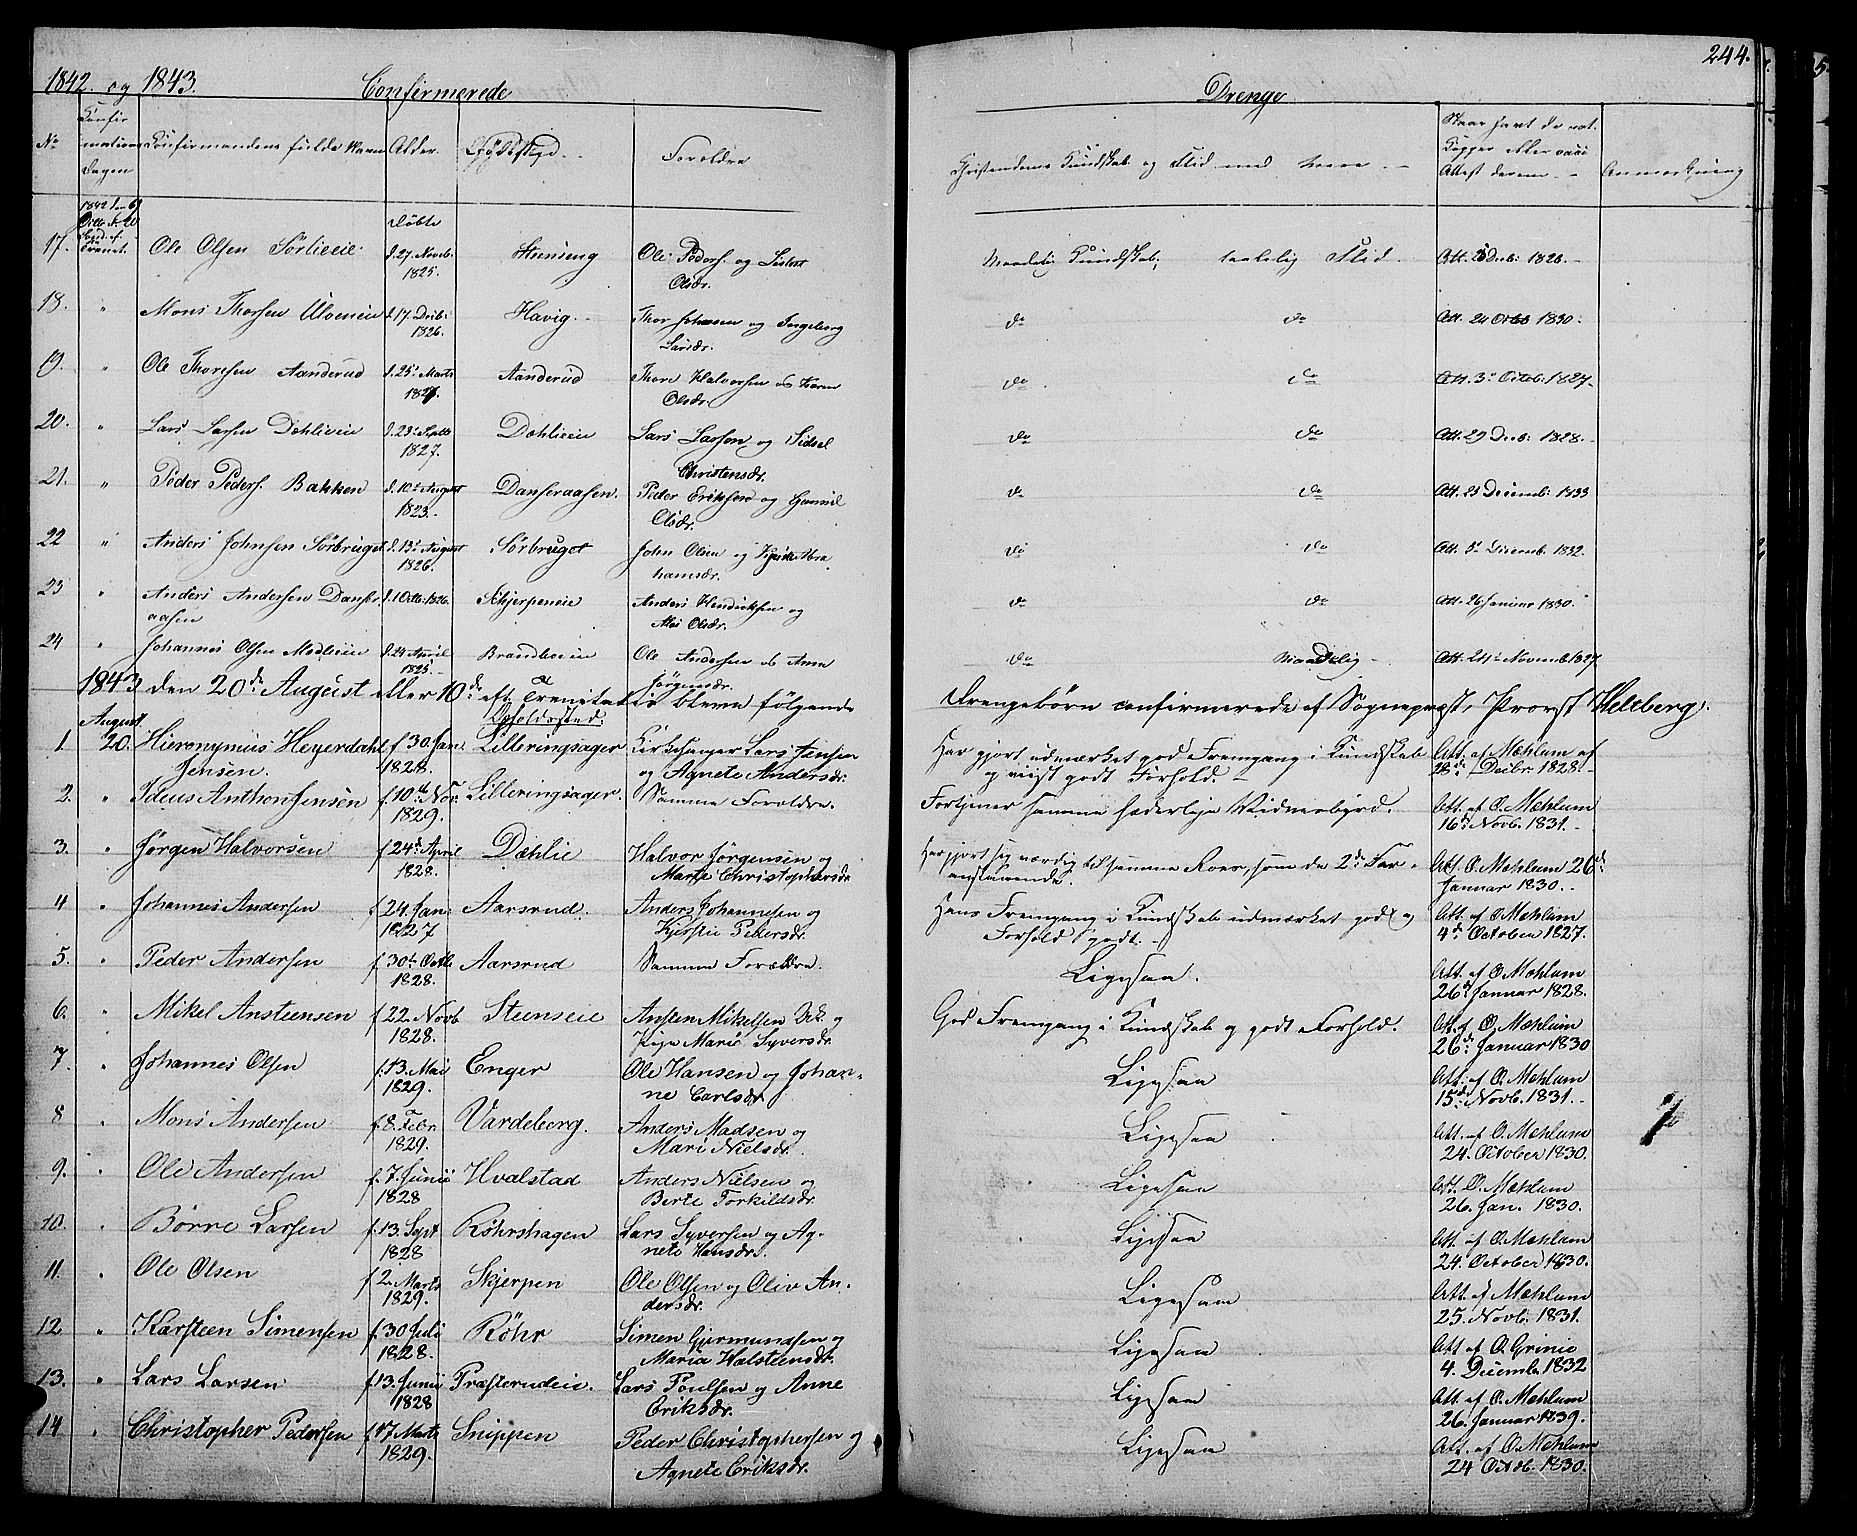 244.
1842. og 1843. Confirmerede Drenge
No Confirmations Dagen Confirmandens fulde Navn Alder Fødested Forældre Christendoms Kundskab og Flid med mere Naar havt de nat. Kopper eller vacci Attest derom Anmærkning
1842 Octb. Trinit. Døbte
17. Ole Olsen Sørlieeie d. 27. Novb. 1825. Steenseng Ole Peders. og Olsdr. Maadelig Kundskab, taalelig Flid. Att. Decb: 1826.
18. " Mons Thorsen Ulveneie d. 17. Decb: 1826. Havig Thor Johnsen og Ingeborg Larsdr. do do Att. 24 Octb 1830.
19. " Ole Thoresen Aanderud d. 25. Marts Aanderud Thore Halvorsen og Karen Olsdr. do do Att. 3. Octob. 1827.
20. " Lars Larsen Dæhlieeie d. 23. Septb 1827. Dæhlieeie Lars Larsen og Sidsel Christensdr. do do Att. 29 Decb: 1828.
21. " Peder Peders. Bakken d. 10. August 1823. Danseraasen. Peder Eriksen og Olsdr. do do Att. 23 Decemb: 1833
22 " Anders Johnsen Sørbruget d. 13. August 1826. Sørbruget John Olsen og Abrahamsdr. do do Att. 3. Decemb. 1832.
23 " Anders Andersen Danseraasen d. 1 Octb. 1826. Skjerpeneie Anders Hendricksen og Mari Olsdr. do do Att. 26 Januar 1830.
24 " Johannes Olsen Moelieeie d. 24 April 1825. Brandboeeie Ole Andersen og Anne Jørgensdr. do Maadelig Att. 24. Novemb. 1827
1843 den 20de August eller 10de eft. Trenitatis bleve følgende Drengebørn confirmerede af Sognepræst, Provst Heltberg.
Opholdssted:
1. August 20. Hieronymus Heyerdahl Jensen. f. 30. Jan 1828. Lilleringsager Kirkesanger Lars Jensen og Agnete Andersdr. Har gjort udmærket god Fremgang i Kundskab og viist godt Forhold. Att. af Mæhlum af 28de Decbr. 1828.
2. " Ideus Anthon Jensen f. 10de Nov. 1829. Lilleringsager. Samme Forældre. Fortjener samme hæderlige Vidnesbyrd. Att. af O. Mæhlum 16de Novb. 1831.
3. " Jørgen Halvorsen f. 24de April 1828. Dæhlie Halvor Jørgensen og Marte Christophersdr Har gjort sig værdig til samme Roes, som de 2de Foranstaaende. Att. O. Mæhlum 26de Januar 1830.
4 " Johannes Andersen f. 24. Jan. 1827 Aarsrud. Anders Johannesen og Kjerstie Pedersdr. Hans Fremgang i Kundskab udmærket god og Forhold godt. Att. af O Mæhlum 4de October 1827.
5. " Peder Andersen f. 30te Octb. 1828. Aarsrud Samme Forældre. Ligesaa. Att. af O. Mæhlum 26de Januar 1828.
6. " Mikel Ansteensen f 22. Novb 1828. Steenseie Ansten Mikelsen og Marie Syversdr God Fremgang i Kundskab og godt Forhold. Att. af O. Mæhlum 26de Januar 1830
7. " Johannes Olsen f. 13. Mai 1829. Enger Ole Hansen og Johanne Carlsdr. Ligesaa Att. af O. Mæhlum 15de Novb. 1831.
8 " Mons Andersen f. 8. Febr. 1829. Vardeberg. Anders Madsen og Mari Nielsdr. Ligesaa Att. af O. Mæhlum 24. October 1830.
9. " Ole Andersen f. 7. Junii 1828 Hvalstad Anders Nielsen og Berte Torkildsdr. Ligesaa Att. O. Mæhlum 26. Jan. 1830.
10. " Børre Larsen f. 13. Sept 1828 Røhrshagen Lars Syversen og Agnete Hansdr. Ligesaa Att. af O. Mæhlum 24. October 1830.
11. " Ole Olsen f 2. Marts 1829. Skjerpen Ole Olsen og Oliv Andersdr. Ligesaa Att. af Mæhlum 25. Novb. 1831.
12 " Karsteen Simensen f. 30 Juli 1828. Røhr Simen Gjermundsen og Maria Halsteensdr. Ligesaa Att. af O. Grinie 4. Decemb. 1832
13. " Lars Larsen f. 13. Junii 1828 Præsterudeie. Lars Poulsen og Anne Eriksdr. Ligesaa Att. af O. Mæhlum 26. Januar 1839.
14 " Christopher Pedersen f. 17 Marts 1829. Snippen Peder Christophersen og Agnete Eriksdr. Ligesaa Att. af O. Mæhlum 24 Octob. 1830.